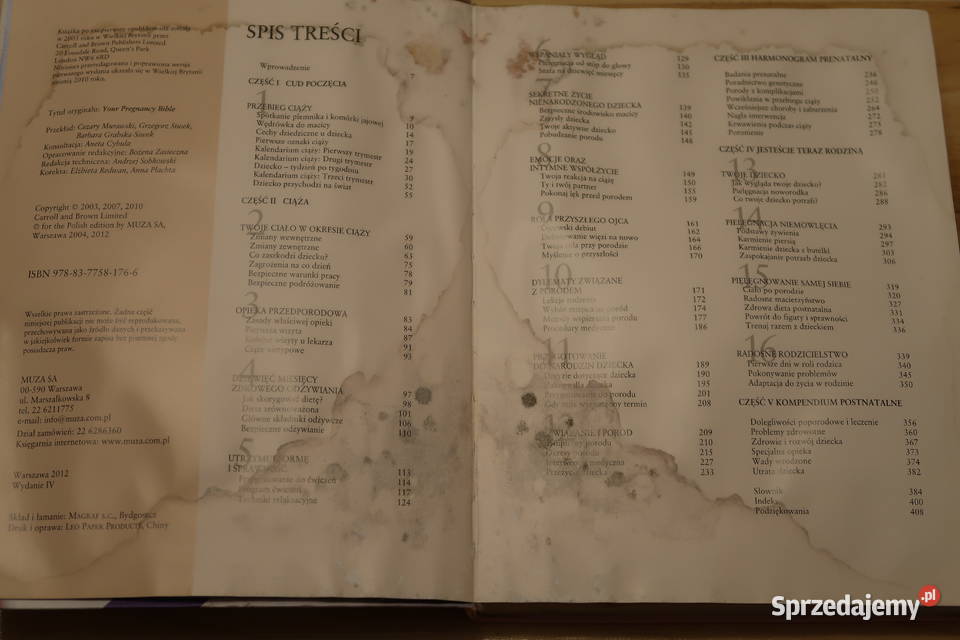 Książka po raz pierwszy
w 2003 roku w Wielkiej Brytanii przez
Carroll and Brown Publishers Limited
20 Lonsdale Road, Queen's Park
London NW6 6RD
Niniejsza przeredagowana i poprawiona wersja
pierwszego wydania ukazała się w Wielkiej Brytanii
2010 roku.
Tytuł oryginału: Your Pregnancy Bible
Przekład: Cezary Murawski, Grzegorz Siwek,
Barbara Grabska-Siwek
Konsultacja: Aneta Cybula
Opracowanie redakcyjne: Bożena Zasieczna
Redakcja techniczna: Andrzej Sobkowski
Korekta: Elżbieta Redwan, Anna Płachta
Copyright © 2003, 2007, 2010
Carroll and Brown Limited
© for the Polish edition by MUZA SA,
Warszawa 2004, 2012
ISBN 978-83-7758-176-6
Wszelkie prawa zastrzeżone. Żadna część
niniejszej publikacji nie może być reprodukowana,
przechowywana jako źródło danych i przekazywana
w jakiejkolwiek formie zapisu bez pisemnej zgody
posiadacza praw.
MUZA SA
00-590 Warszawa
ul. Marszałkowska 8
tel. 22 6211775
e-mail: info@muza.com.pl
Dział zamówień: 22 6286360
Księgarnia internetowa: www.muza.com.pl
Warszawa 2012
Wydanie IV
Skład i łamanie: MAGRAF s.c., Bydgoszcz
Druk i oprawa: LEO PAPER PRODUCTS, Chiny
SPIS TREŚCI
Wprowadzenie 7
CZĘŚĆ I CUD POCZĘCIA
1
PRZEBIEG CIĄŻY 9
Spotkanie plemnika i komórki jajowej 10
Wędrówka do macicy 14
Cechy dziedziczne u dziecka 17
Pierwsze oznaki ciąży 19
Kalendarium ciąży: Pierwszy trymestr 24
Kalendarium ciąży: Drugi trymestr 27
Dziecko – tydzień po tygodniu 30
Kalendarium ciąży: Trzeci trymestr 52
Dziecko przychodzi na świat 55
CZĘŚĆ II CIĄŻA
2
TWOJE CIAŁO W OKRESIE CIĄŻY 59
Zmiany wewnętrzne 60
Zmiany zewnętrzne 63
Co zaszkodzi dziecku? 75
Zagrożenia na co dzień 78
Bezpieczne warunki pracy 79
Bezpieczne podróżowanie 81
3
OPIEKA PRZEDPORODOWA 83
Zasady właściwej opieki 84
Pierwsza wizyta 87
wizyty u lekarza 91
Ciąże nietypowe 93
4
DZIEWIĘĆ MIESIĘCY
ZDROWEGO ODŻYWIANIA 97
Jak skorygować dietę? 98
Dieta zrównoważona 101
Główne składniki odżywcze 106
Bezpieczne odżywianie 110
5
UTRZYMUJ FORMĘ
I SPRAWNOŚĆ 113
Przygotowanie do ćwiczeń 114
Program ćwiczeń 117
Techniki relaksacyjne 124
WSPANIAŁY WYGLĄD 129
Pielęgnacja od stóp do głowy 130
Szafa na dziewięć miesięcy 135
7
SEKRETNE ŻYCIE
NIENARODZONEGO DZIECKA 139
Bezpieczne środowisko macicy 140
Zmysły dziecka 142
Twoje aktywne dziecko 145
Pobudzanie porodu 148
8
EMOCJE ORAZ
INTYMNE WSPÓŁŻYCIE 149
Twoja reakcja na ciążę 150
Ty i twój partner 155
Pokonaj lęk przed porodem 159
9
ROLA PRZYSZŁEGO OJCA 161
Ojcowski debiut 162
Definiowanie więzi na nowo 164
Twoja rola przy porodzie 166
Myślenie o przyszłości 170
10
DYLEMATY ZWIĄZANE
Z PORODEM 171
Lekcje rodzenia 172
Wybór miejsca na poród 174
Metody wspierania porodu 177
Procedury medyczne 186
11
PRZYGOTOWANIE
DO NARODZIN DZIECKA 189
Decyzje dotyczące dziecka 190
dla dziecka 195
Przygotowania do porodu 201
Gdy mija wyznaczony termin 208
ROZWIĄZANIE I PORÓD 209
porodu 210
Okresy porodu 215
Interwencja medyczna 227
Przeżycia dziecka 233
CZĘŚĆ III HARMONOGRAM PRENATALNY
Badania prenatalne 236
Poradnictwo genetyczne 246
Porady z komplikacjami 250
Powikłania w przebiegu ciąży 252
Wcześniejsze choroby i zaburzenia 264
Nagła interwencja 272
Krwawienia podczas ciąży 275
Poronienie 278
CZĘŚĆ IV JESTEŚCIE TERAZ RODZINĄ
13
TWOJE DZIECKO 281
Jak wygląda twoje dziecko? 282
Pielęgnacja noworodka 286
Co twoje dziecko potrafi? 288
14
PIELĘGNACJA NIEMOWLĘCIA 293
Podstawy żywienia 294
Karmienie piersią 297
Karmienie dziecka z butelki 303
Zaspokajanie potrzeb dziecka 306
15
PIELĘGNOWANIE SAMEJ SIEBIE 319
Ciało po porodzie 320
Radosne macierzyństwo 327
Zdrowa dieta postnatalna 331
Powrót do figury i sprawności 334
Trenuj razem z dzieckiem 336
16
RADOSNE RODZICIELSTWO 339
Pierwsze dni w roli rodzica 340
Pokonywanie problemów 345
Adaptacja do życia w rodzinie 350
CZĘŚĆ V KOMPENDIUM POSTNATALNE
Dolegliwości poporodowe i leczenie 356
Problemy zdrowotne 360
Zdrowie i rozwój dziecka 367
Specjalna opieka 373
Wady wrodzone 374
Utrata dziecka 382
Słownik 384
Indeks 400
Podziękowania 408
Sprzedajemy.pl